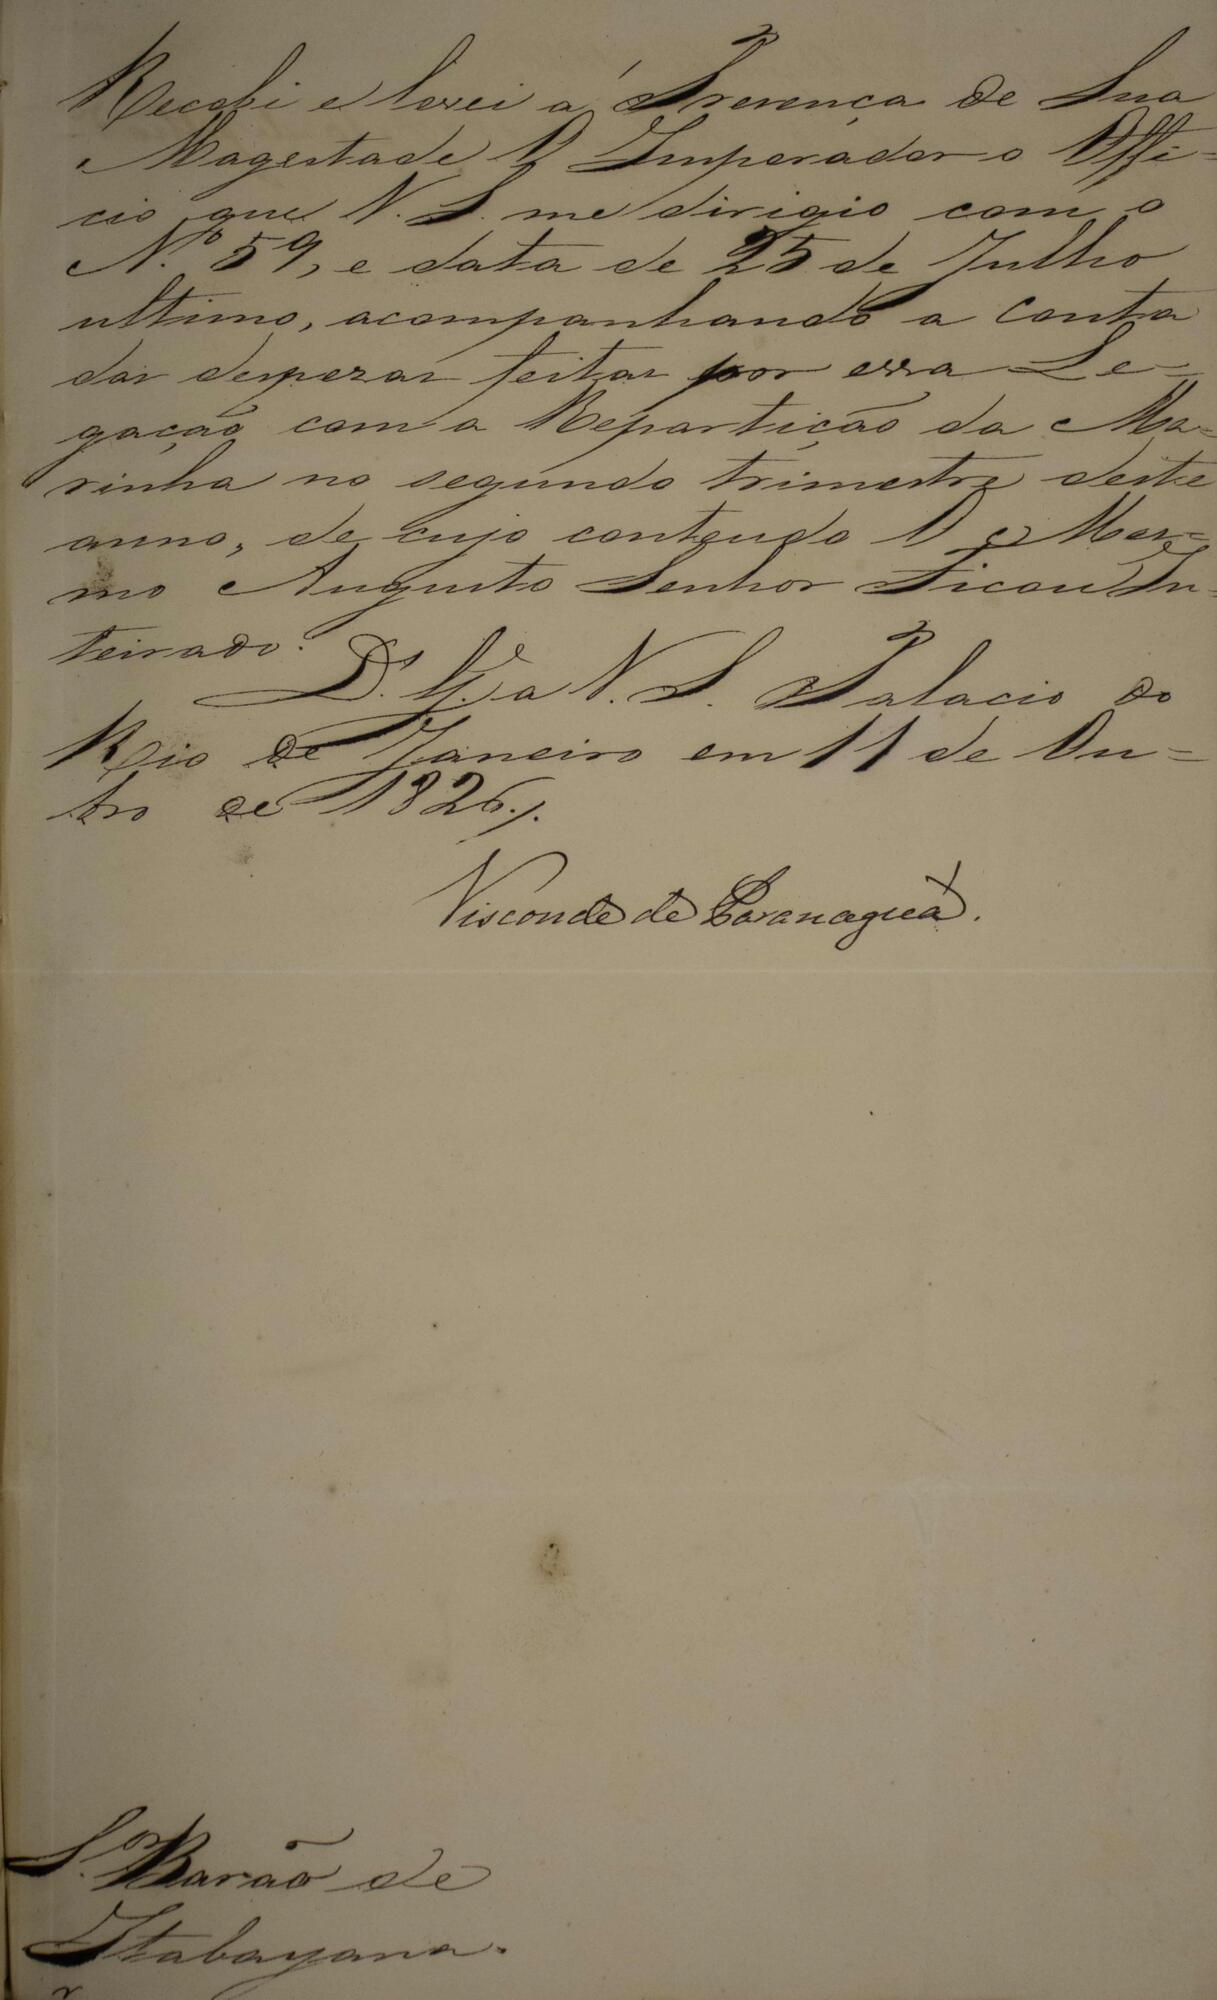 Recebi e levei á Presença de Sua
Magestade O Imperador o Offi=
cio que V. S. me dirigio com o
N.º 59, e data de 25 de Julho
ultimo, acompanhando a conta
das despezas feitas por essa Le=
gação com a Repartição da Ma=
rinha no segundo trimestre deste
anno, de cujo conteudo O Mes=
mo Augusto Senhor Ficou In=
teirado.
D.s G.e a V. S. Palacio do
Rio de Janeiro em 11 de Ou=
bro de 1826./.
Visconde de Paranaguá.
S.or Barão de
Itabayana.